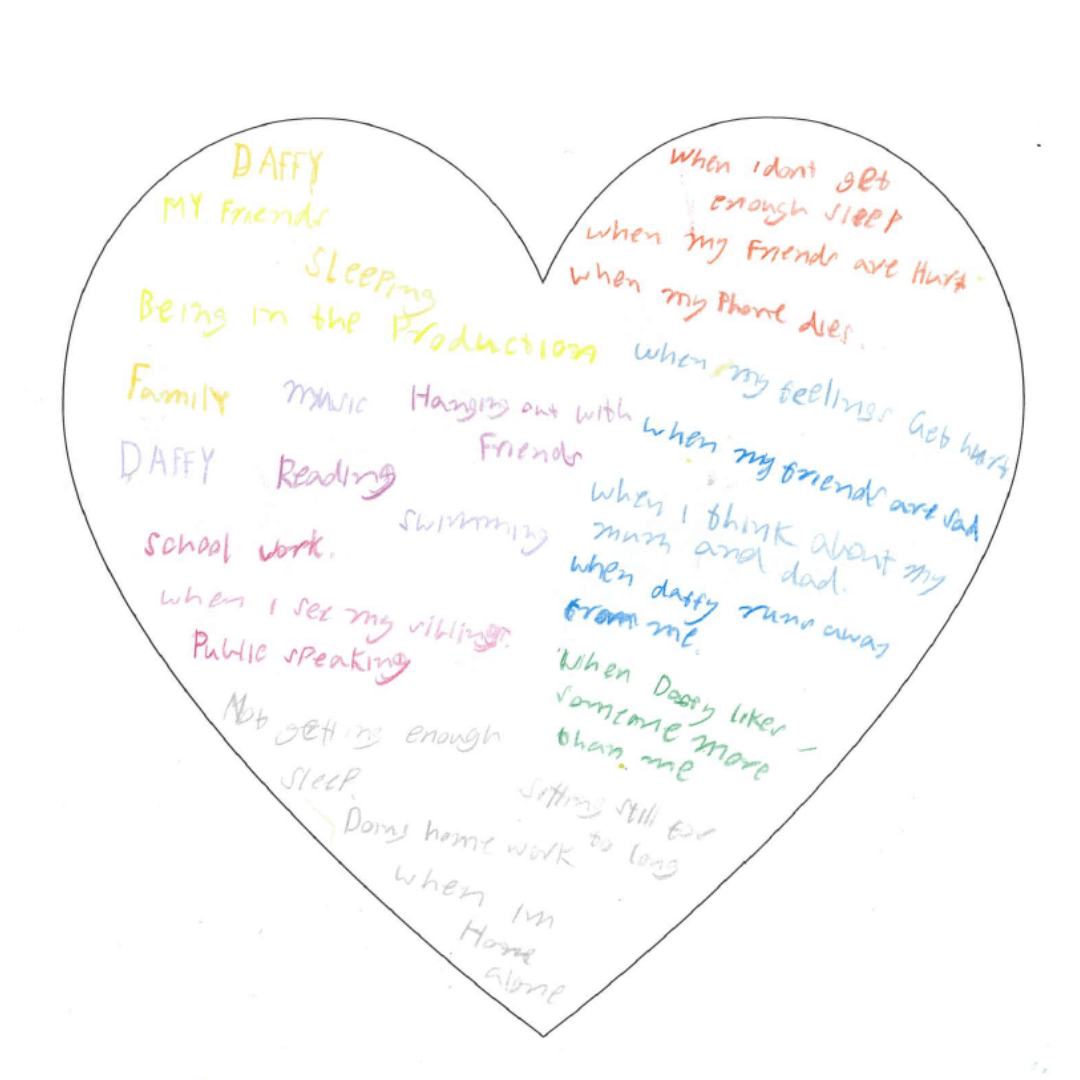 DAFFY
MY Friends
Sleeping
Being in the Production
Family
music
Hanging out with
Friends
DAFFY
Reading
swimming
school work.
when I see my siblings.
Public speaking
Not getting enough
sleep.
Doing home work
when im
Home
alone
when i dont get
enough sleep
when my Friends are Hurt
when my Phone dies.
when my feelings Get hurt
when my friends are sad
when I think about my
mum and dad.
when daffy runs away
from me.
When Daffy likes
someone more
than me
sitting still for
to long